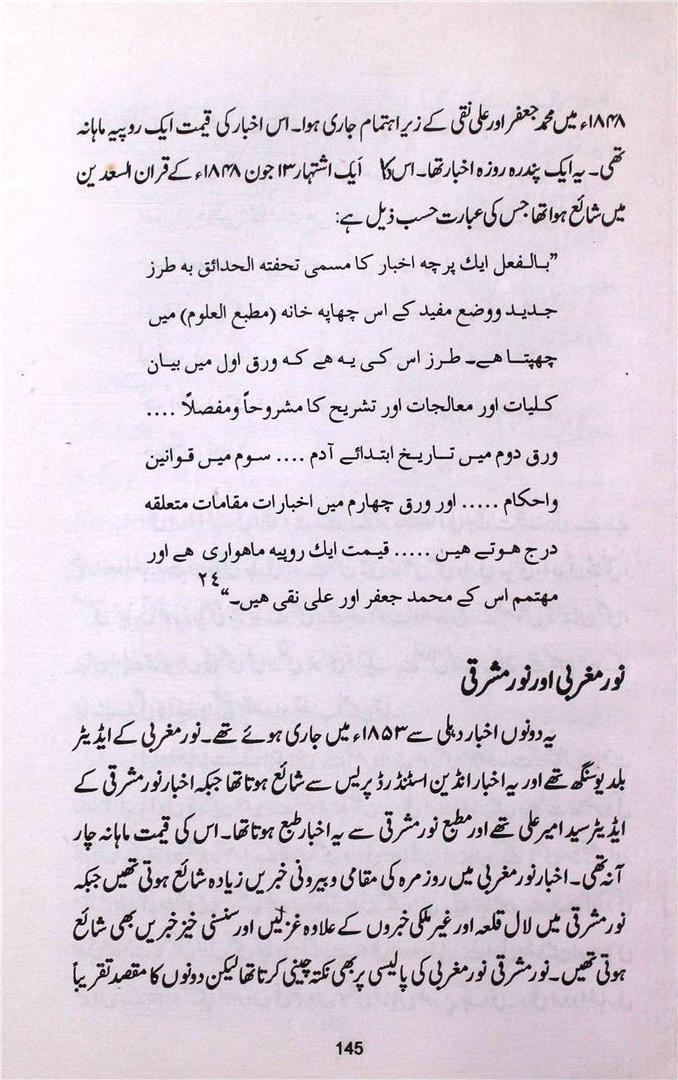 ۱۸۴۸ء میں محمد جعفر اور علی نقی کے زیر اہتمام جاری ہوا۔ اس اخبار کی قیمت ایک روپیہ ماہانہ
تھی۔ یہ ایک پندرہ روزہ اخبار تھا۔ اس کا ایک اشتہار ۱۳ جون ۱۸۴۸ء کے قران السعدین
میں شائع ہوا تھا جس کی عبارت حسب ذیل ہے:
”بالفعل ایک پرچہ اخبار کا مسمی تحفتہ الحدائق بہ طرز
جدید ووضع مفید کے اس چھاپہ خانہ (مطبع العلوم) میں
چھپتا ہے۔ طرز اس کی یہ ھے کہ ورق اول میں بیان
کلیات اور معالجات اور تشریح کا مشروحاً ومفصلاً ....
ورق دوم میں تاریخ ابتدائے آدم .... سوم میں قوانین
واحکام ..... اور ورق چھارم میں اخبارات مقامات متعلقہ
درج ہوتے ہیں ..... قیمت ایک روپیہ ماھواری ھے اور
مھتمم اس کے محمد جعفر اور علی نقی ھیں۔“ ۲٤
نور مغربی اور نور مشرقی
یہ دونوں اخبار دہلی سے ۱۸۵۳ء میں جاری ہوئے تھے۔ نور مغربی کے ایڈیٹر
بلدیو سنگھ تھے اور یہ اخبار انڈین اسٹنڈرڈ پریس سے شائع ہوتا تھا جبکہ اخبار نور مشرقی کے
ایڈیٹر سید امیر علی تھے اور مطبع نور مشرقی سے یہ اخبار طبع ہوتا تھا۔ اس کی قیمت ماہانہ چار
آنہ تھی۔ اخبار نور مغربی میں روز مرہ کی مقامی و بیرونی خبریں زیادہ شائع ہوتی تھیں جبکہ
نور مشرقی میں لال قلعہ اور غیر ملکی خبروں کے علاوہ غزلیں اور سنسنی خیز خبریں بھی شائع
ہوتی تھیں۔ نور مشرقی نور مغربی کی پالیسی پر بھی نکتہ چینی کرتا تھا لیکن دونوں کا مقصد تقریباً
145